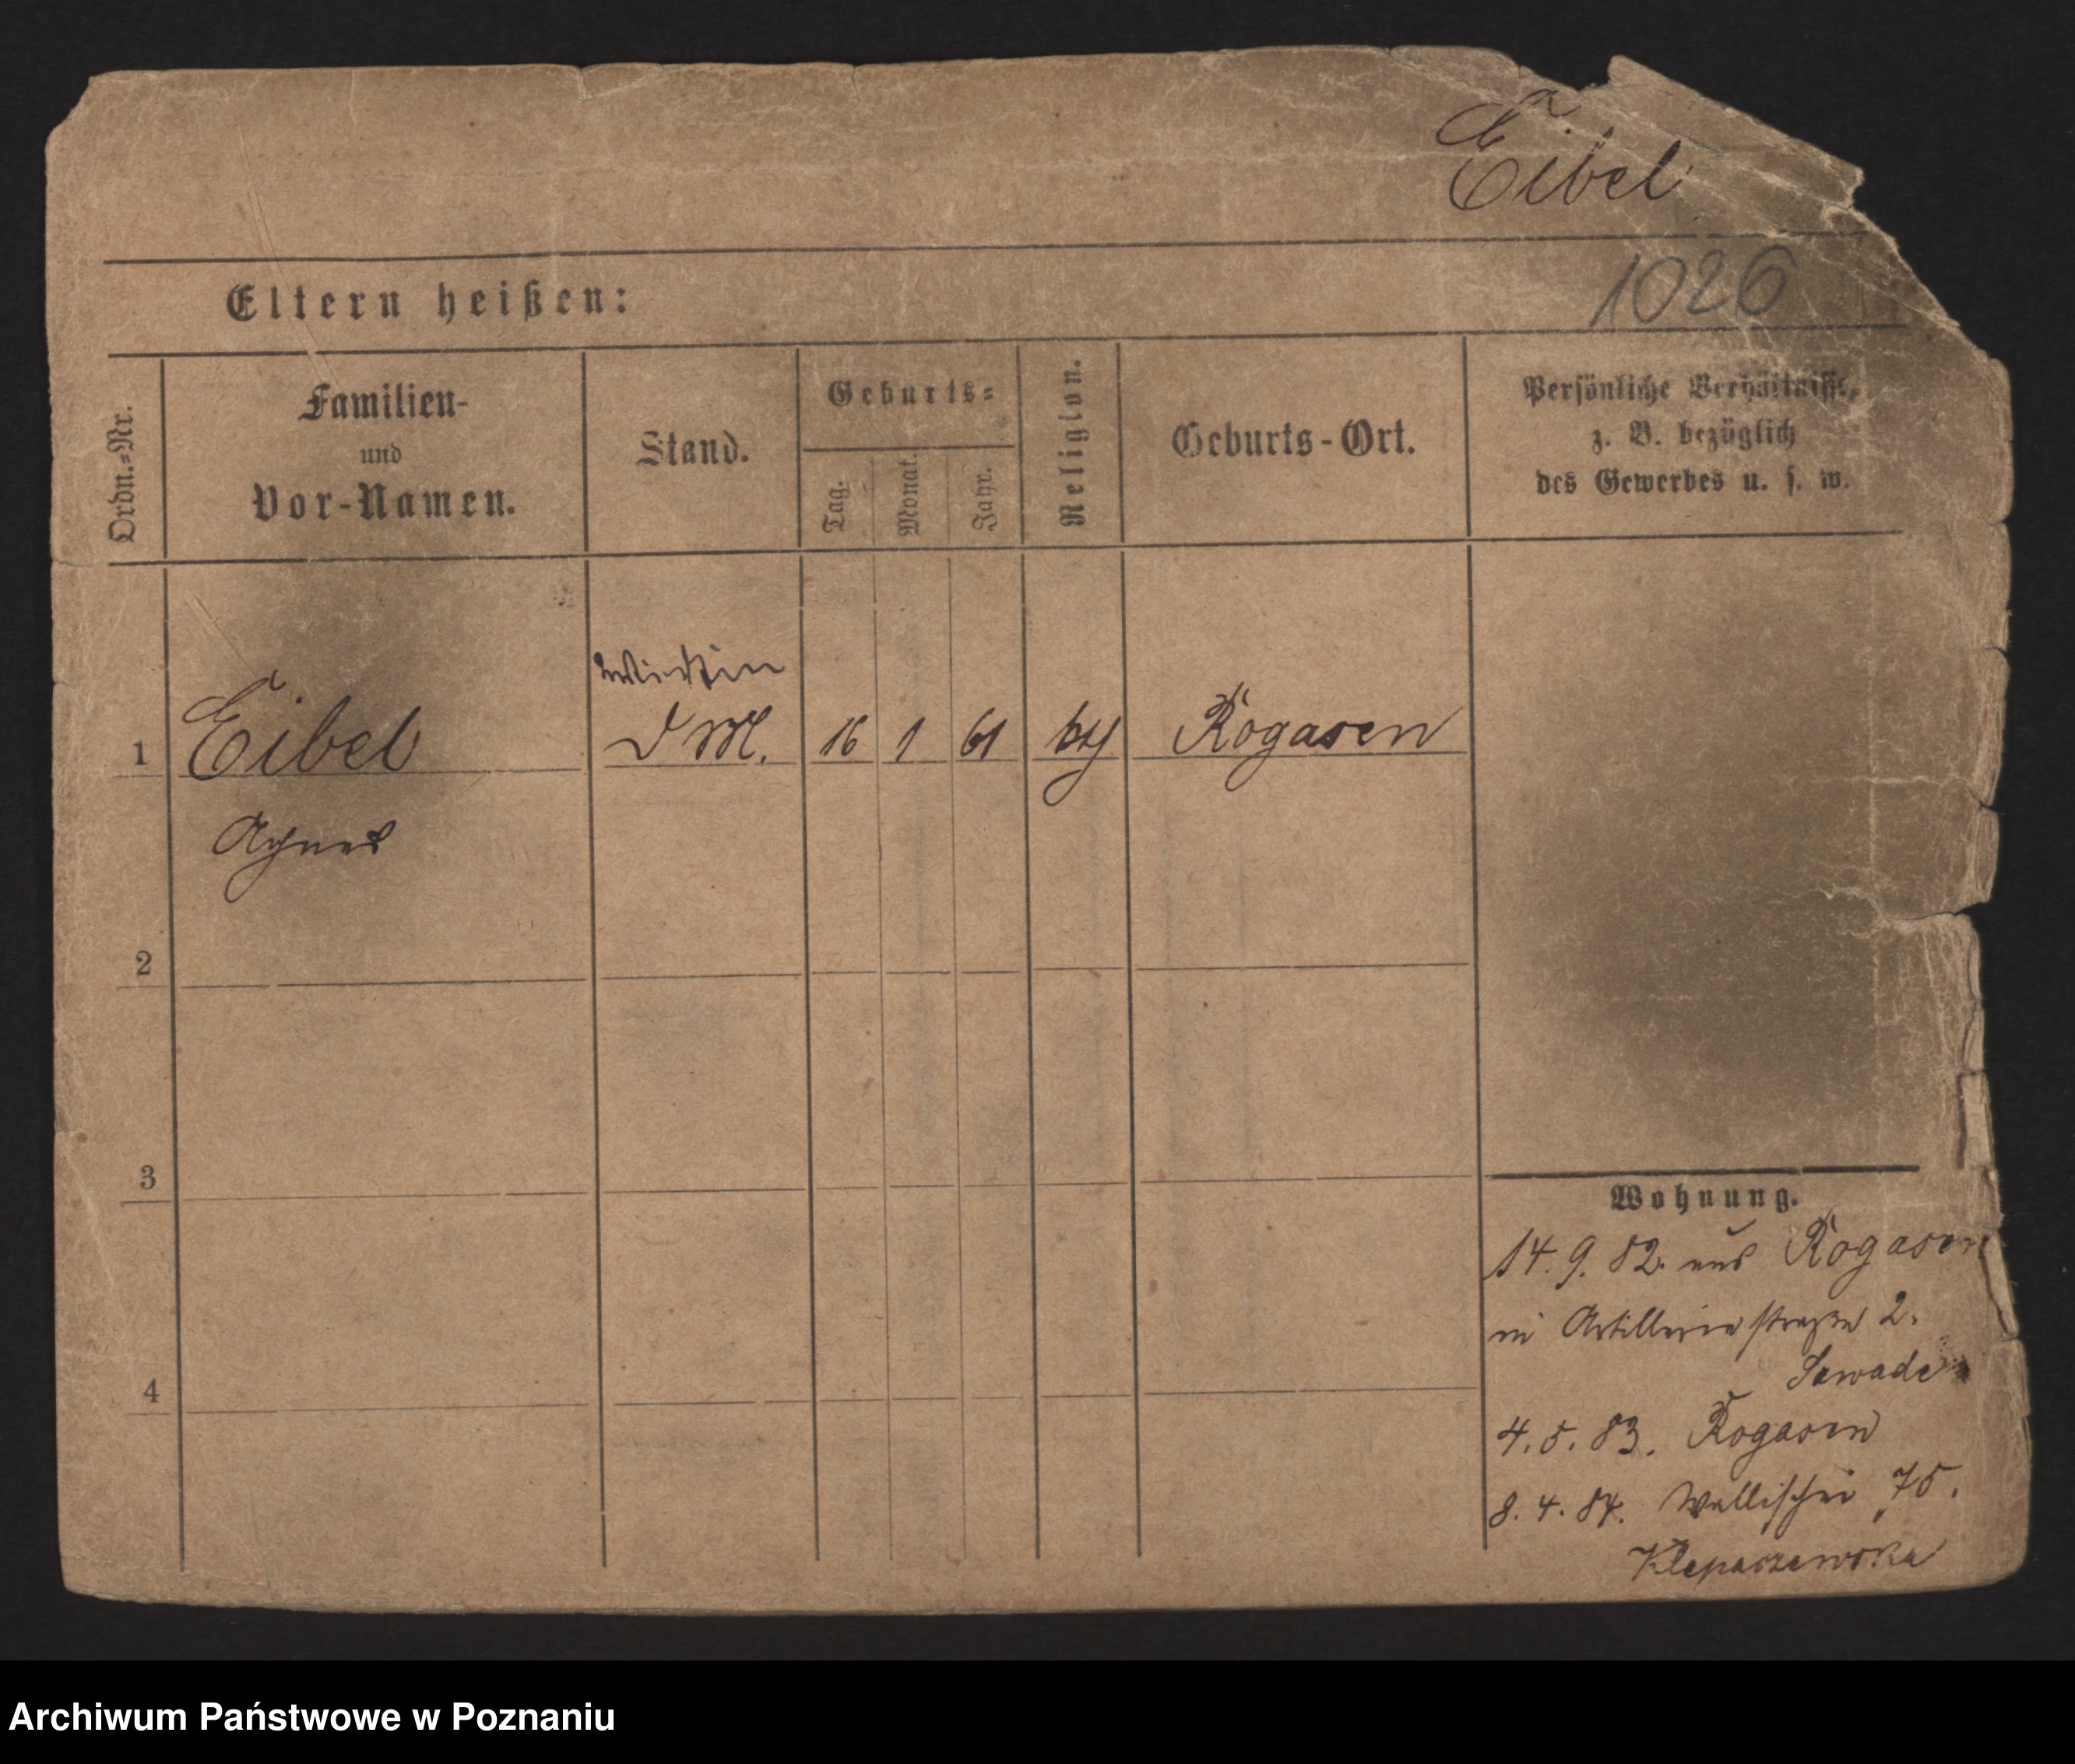 Eibel
1026
Eltern heißen:
Ordn.=Nr.
Familien-
und
Vor-Namen.
Stand.
Geburts=
Tag.
Monat.
Jahr.
Religion.
Geburts-Ort.
Persönliche Verhältnisse,
z. B. bezüglich
des Gewerbes u. s. w.
Wirthin
1 Eibel D M. 16 1 61 Rogasen
Agnes
2
3
4
Wohnung.
14. 9. 82. aus Rogasen
in Artilleriestraße 2.
Sawade
4. 5. 83. Rogasen
8. 4. 84. Wallischei 75.
Klepaczewska
Archiwum Państwowe w Poznaniu